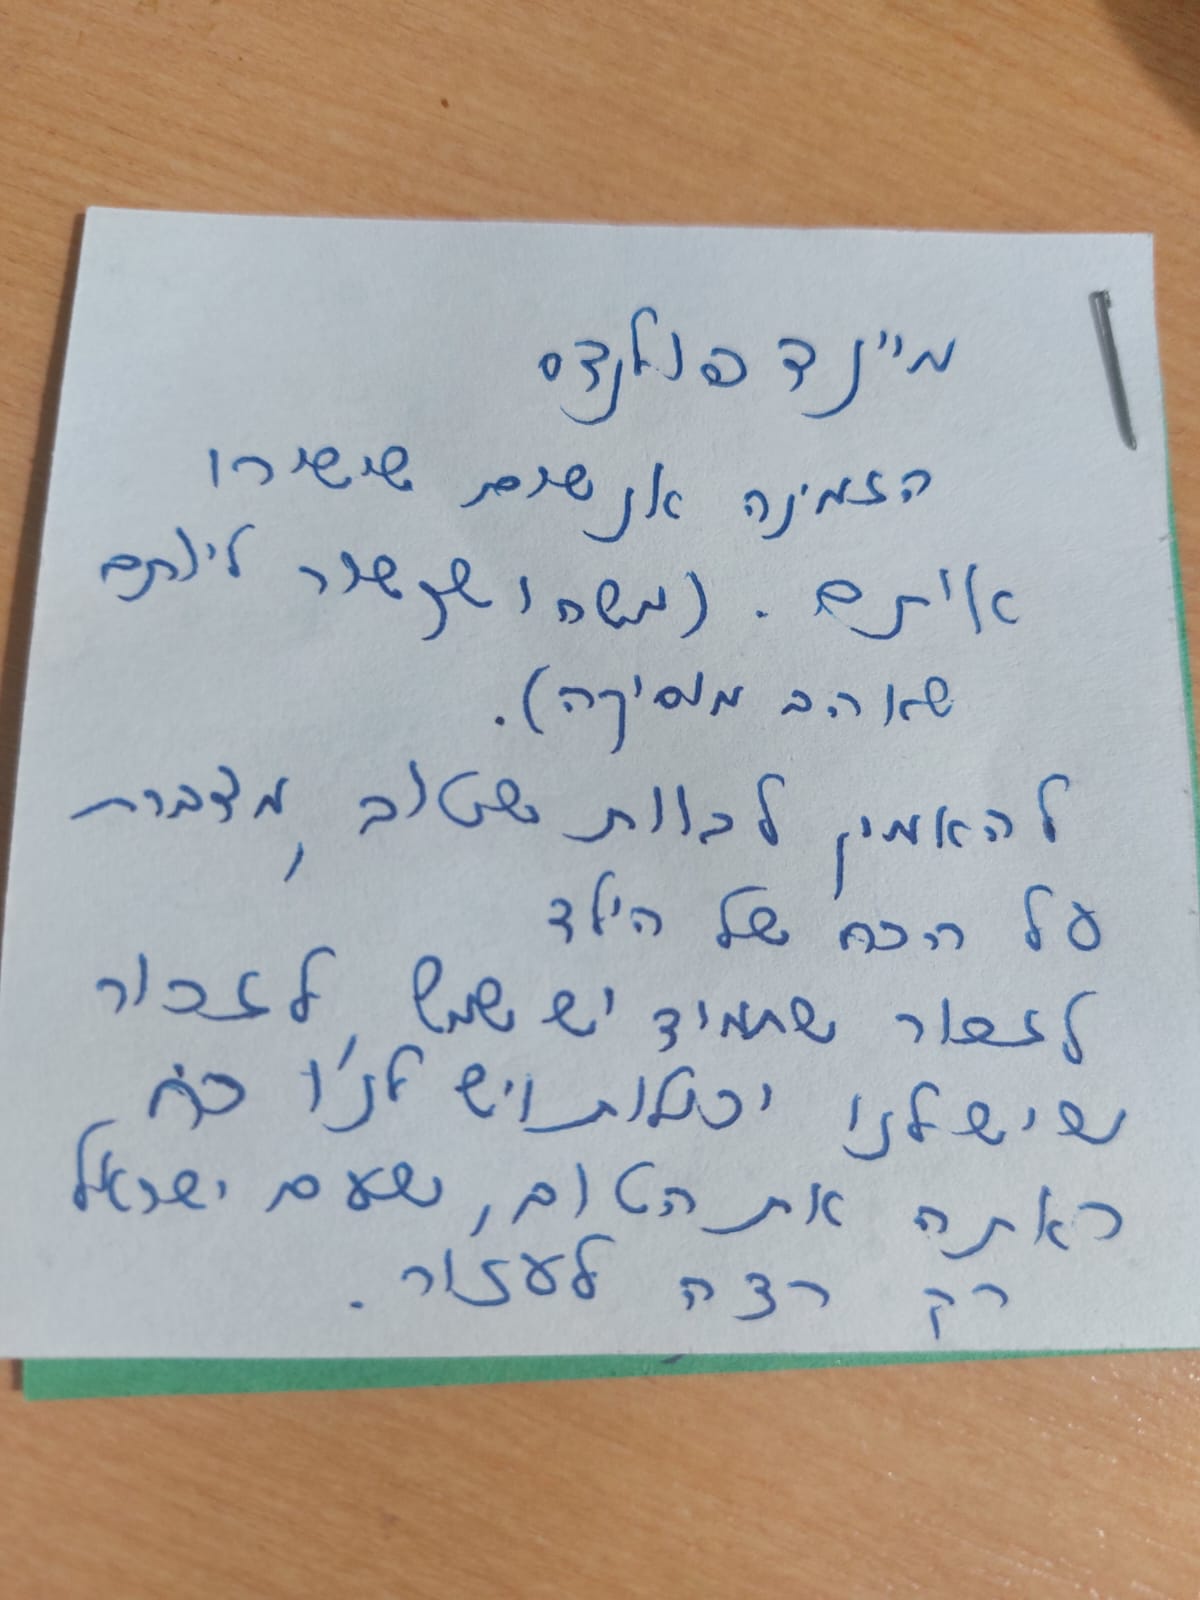 מיינד פולנדס
הזמינה אנשים שישירו
איתם. (משהו שקשור ליותם
שאוהב מוסיקה).
להאמין לכוות שטוב, מדברת
על הכח של הילד
לזכור שתמיד יש שמש, לזכור
שיש לנו יכולות ויש לנו כח
ראתה את הטוב, שעם ישראל
רק רצה לעזור.